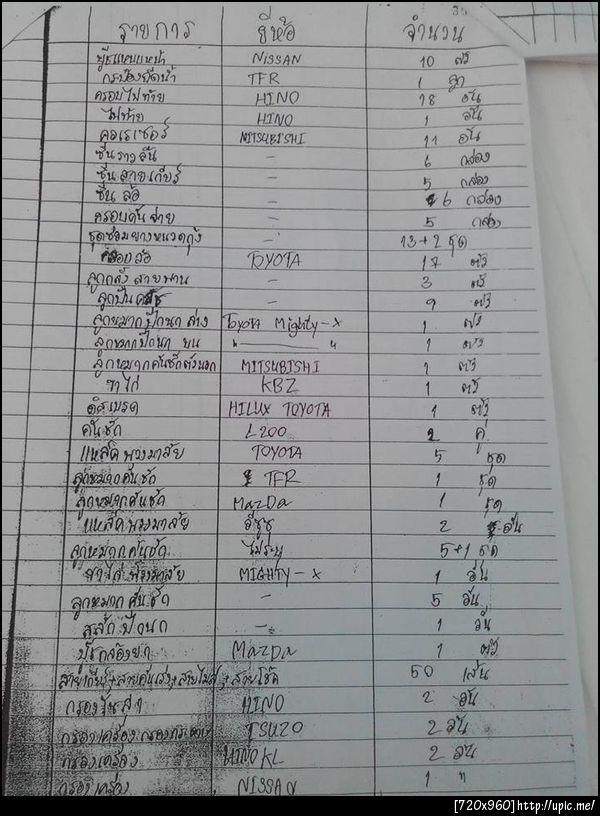 รายการ ยี่ห้อ จำนวน
NISSAN 10 ตัว
กระป๋องฉีดน้ำ TFR 1 ลูก
ครอบไฟท้าย HINO 18 อัน
ไฟท้าย HINO 1 อัน
คอเรเซอร์ MITSUBISHI 11 อัน
ซีนราวลิ้น - 6 กล่อง
ซีนสายเกียร์ - 5 กล่อง
ซีนล้อ - 6 กล่อง
ครอบคันส่าย - 5 กล่อง
ชุดซ่อมยางหนวดกุ้ง - 13+2 ชุด
ล้อ TOYOTA 17 ตัว
ลูกลอกสายพาน - 3 ตัว
ลูกปืนครัช - 9 ตัว
ลูกหมากปีกนกล่าง Toyota Mighty-X 1 ตัว
ลูกหมากปีกนกบน " 1 ตัว
ลูกหมากคันชักตัวนอก MITSUBISHI 1 ตัว
ขาไก่ KBZ 1 ตัว
ดิสเบรค HILUX TOYOTA 1 ตัว
คันชัก L200 2 คู่
แหล็คพวงมาลัย TOYOTA 5 ชุด
ลูกหมากคันชัก TFR 1 ชุด
ลูกหมากคันชัก MazDa 1 ชุด
แหล็คพวงมาลัย อีซูซุ 2 อัน
ลูกหมากคันชัก ไม่ระบุ 5+1 ชุด
ขาไก่พวงมาลัย MIGHTY-X 1 อัน
ลูกหมากคันชัก - 5 อัน
สลักปีกนก - 1 อัน
MazDa 1 ตัว
สายเกียร์+สายคันเร่ง+สายไมล์+สายโช๊ค 50 เส้น
กรองโซล่า HINO 2 อัน
กรองเครื่อง ISUZO 2 อัน
กรองเครื่อง HINO KL 2 อัน
กรองเครื่อง NISSAN 1 "
[720x960]http://upic.me/